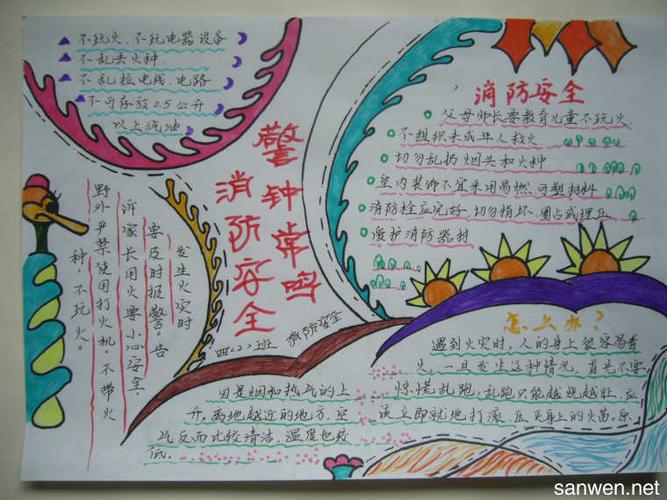 不玩火，不玩电器设备
不乱丢火种。
不乱拉电线、电路
不可存放0.5公升
以上汽油
警钟常鸣
消防安全
消防安全
父母师长要教育儿童不玩火
不组织未成年人救火
切勿乱扔烟头和火种
室内装饰不宜采用易燃可塑材料
消防栓应完好，切勿损坏、圈占或埋压
爱护消防器材
发生火灾时
要及时报警。告
诉家长用火要小心安全。
野外严禁使用打火机，不带火
种，不玩火。
四〈2〉班
消防安全
因是烟和热气的上
升，离地越近的地方，空
气反而比较清洁，温度也较
低。
怎么办？
遇到火灾时，人的身上很容易着
火，一旦发生这种情况，首先不要
惊慌乱跑，乱跑只能越烧越旺，应
该立即就地打滚，压灭身上的火苗，原
sanwen.net